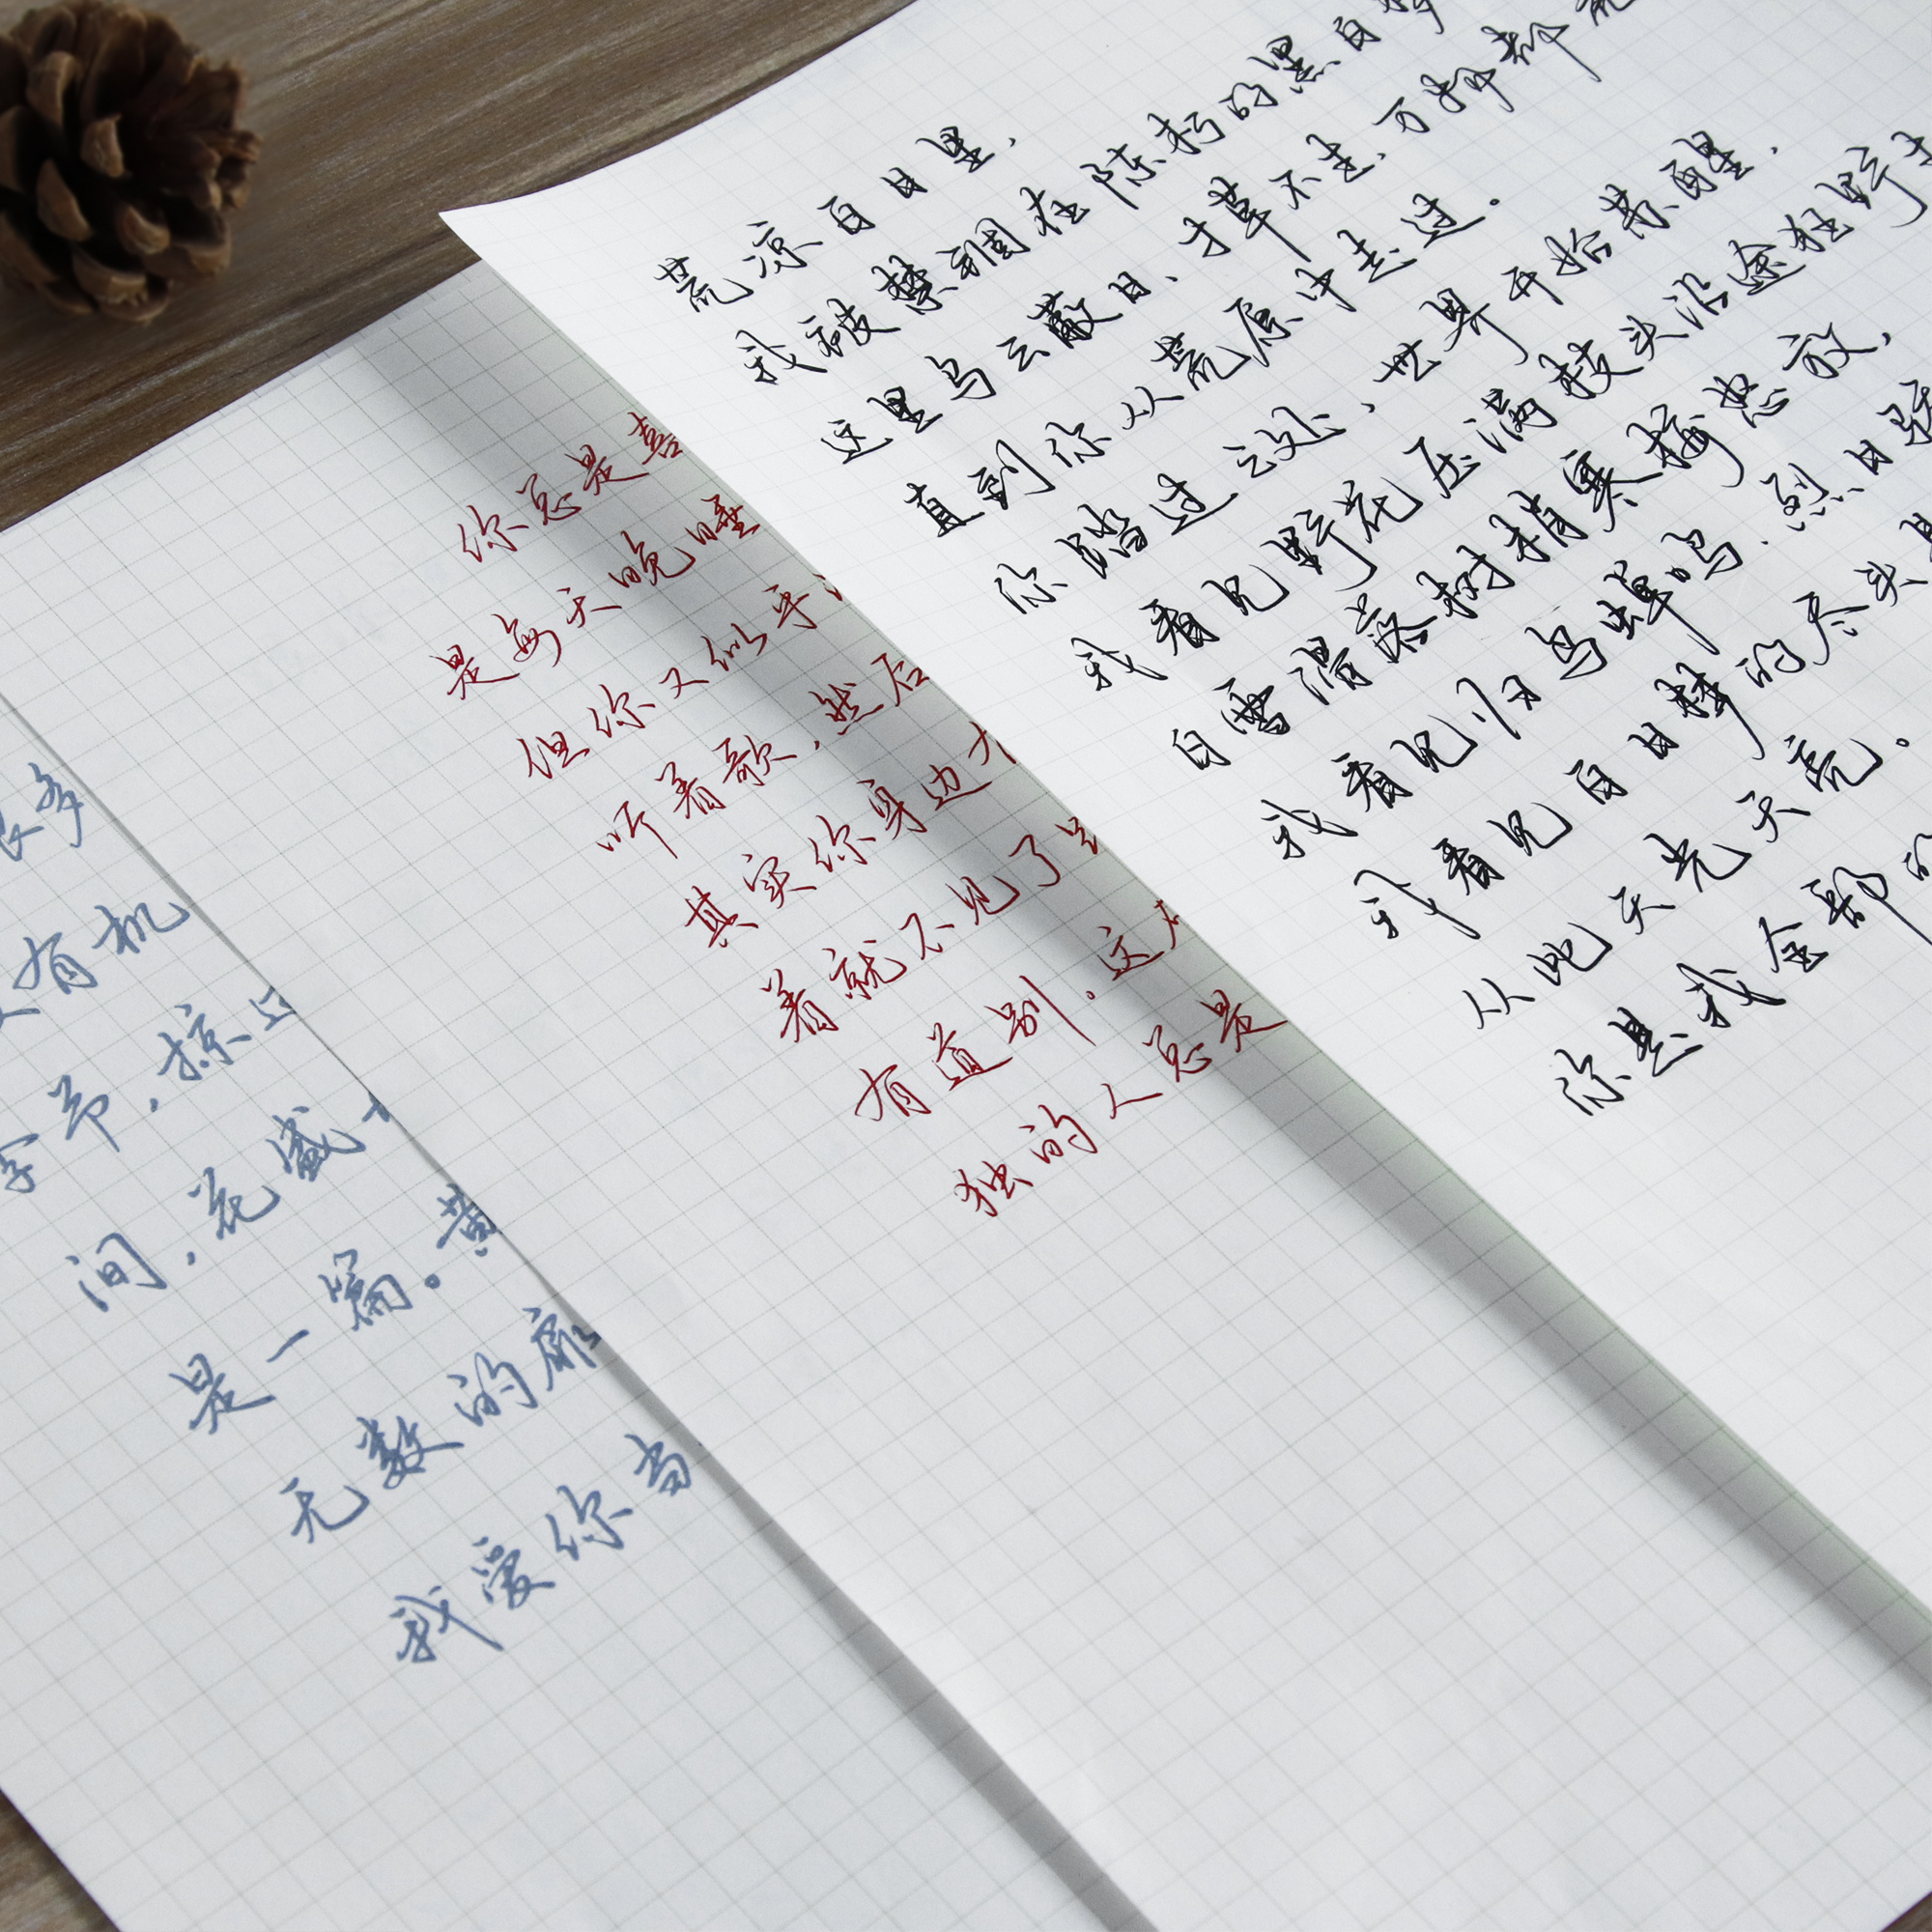 荒凉百日里，
我被禁锢在陈朽的黑白
这里乌云蔽日、寸草不生、万籁都
直到你从荒原中走过。
你踏过之处，世界开始苏醒．
我看见野花压满枝头沿途狂野
白雪滑落树梢寒梅怒放，
我看见归鸟蝉鸣．烈日
我看见白日梦的尽头
从此天光大亮。
你是我全部的
你总是喜
是每天晚睡
但你又似乎
听着歌，然后
其实你身边
着就不见了
有道别。这
独的人总是
有机
字节，掠
间，花盛
是一篇。黄
无数的
我爱你当